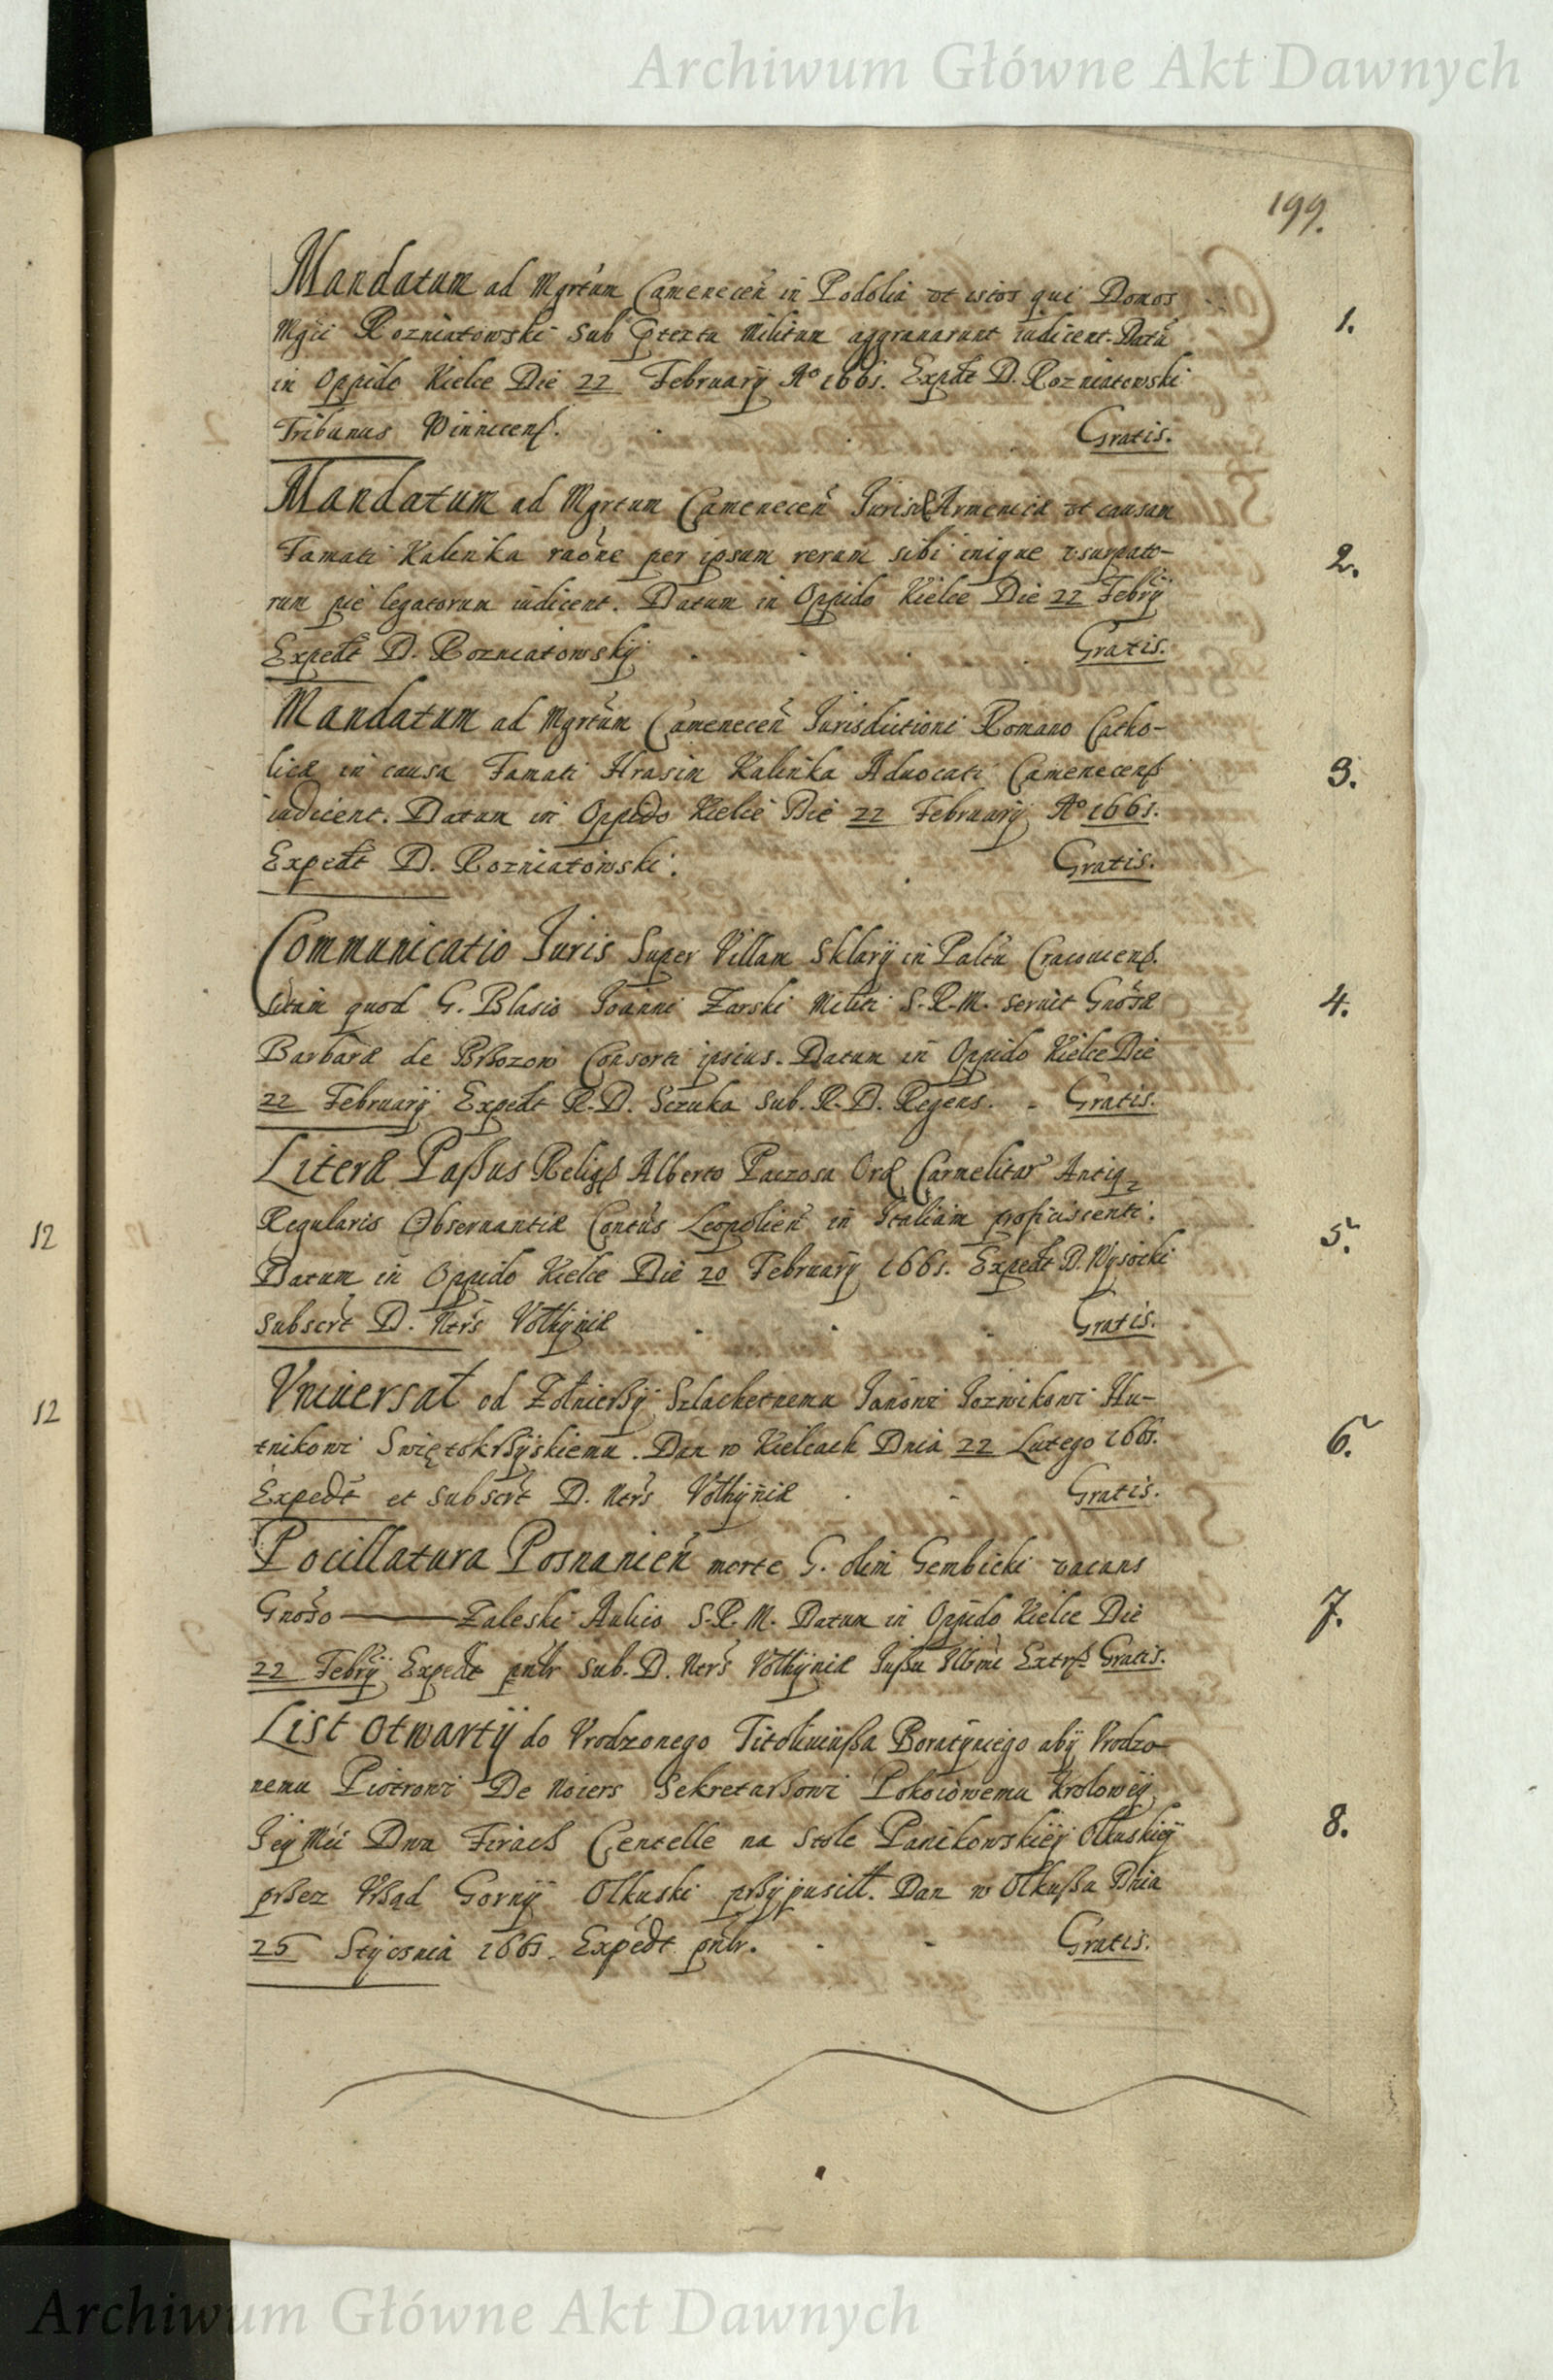 Archiwum Główne Akt Dawnych
199.
Mandatum ad Mgrtum Camenecen in Podolia ut istos qui Domos
Mgci Rozniatowski sub ptextu Militum aggravarunt iudicent. Datu
in Oppido Kielce Die 22 February Ao 1661. Expdt D. Rozniatowski
Tribunus Winnicens. Gratis.
1.
Mandatum ad Mgrtum Camenecen Jurisd Armenicæ ut causam
Famati Kalinka raone per ipsum rerum sibi inique usurpato-
rum pie legatorum iudicent. Datum in Oppido Kielce Die 22 Febry
Expedt D. Rozniatowsky Gratis.
2.
Mandatum ad Mgrtum Camenecen Jurisdictioni Romano Catho-
licæ in causa Famati Hrasim Kalinka Aduocati Camenecens
iudicent. Datum in Oppido Kielce Die 22 February Ao 1661.
Expedt D. Rozniatowski. Gratis.
3.
Communicatio Juris super Villam Sklary in Paltu Cracouiens.
sitam quod G. Blasio Joanni Zarski Militi S.R.M. seruit Gnosæ
Barbaræ de Brßozow Consorti ipsius. Datum in Oppido Kielce Die
22 February Expedt R.D. Sczuka Sub. R.D. Regens. Gratis.
4.
Literæ Paßus Religs Alberto Paczosa Ord Carmelitar Antiq
Regularis Obseruantiæ Contus Leopolien in Italiam proficiscenti.
Datum in Oppido Kielce Die 20 February 1661. Expedt D. Wysocki
subscrt D. Ntrs Volhyniæ Gratis.
5.
12
Vniuersał od Zołnierßy Szlachetnemu Janowi Jozwikowi Hu-
tnikowi Swiętokrßyskiemu. Dan w Kielcach Dnia 22 Lutego 1661.
Expedt et subscrt D. Ntrs Volhyniæ Gratis.
6.
12
Pocillatura Posnanien morte G. olim Gembicki vacans
Gnoso ——— Zaleski Aulico S.R.M. Datum in Oppido Kielce Die
22 Febry Expedt pntr sub. D. Ntrs Volhyniæ Jußu Gratis.
7.
List otwarty do Vrodzonego Titoliuiußa Boratyniego aby Vrodzo-
nemu Piotrowi De Noiers Sekretarßowi Pokoiowemu Krolowey
Jey Mci Dwu Centelle na Stole Panikowskiey Olkuskiey
prßez Vrßąd Gorny Olkuski prßypuscił. Dan w Olkußu Dnia
25 Stycsnia 1661. Expedt pntr. Gratis.
8.
Archiwum Główne Akt Dawnych